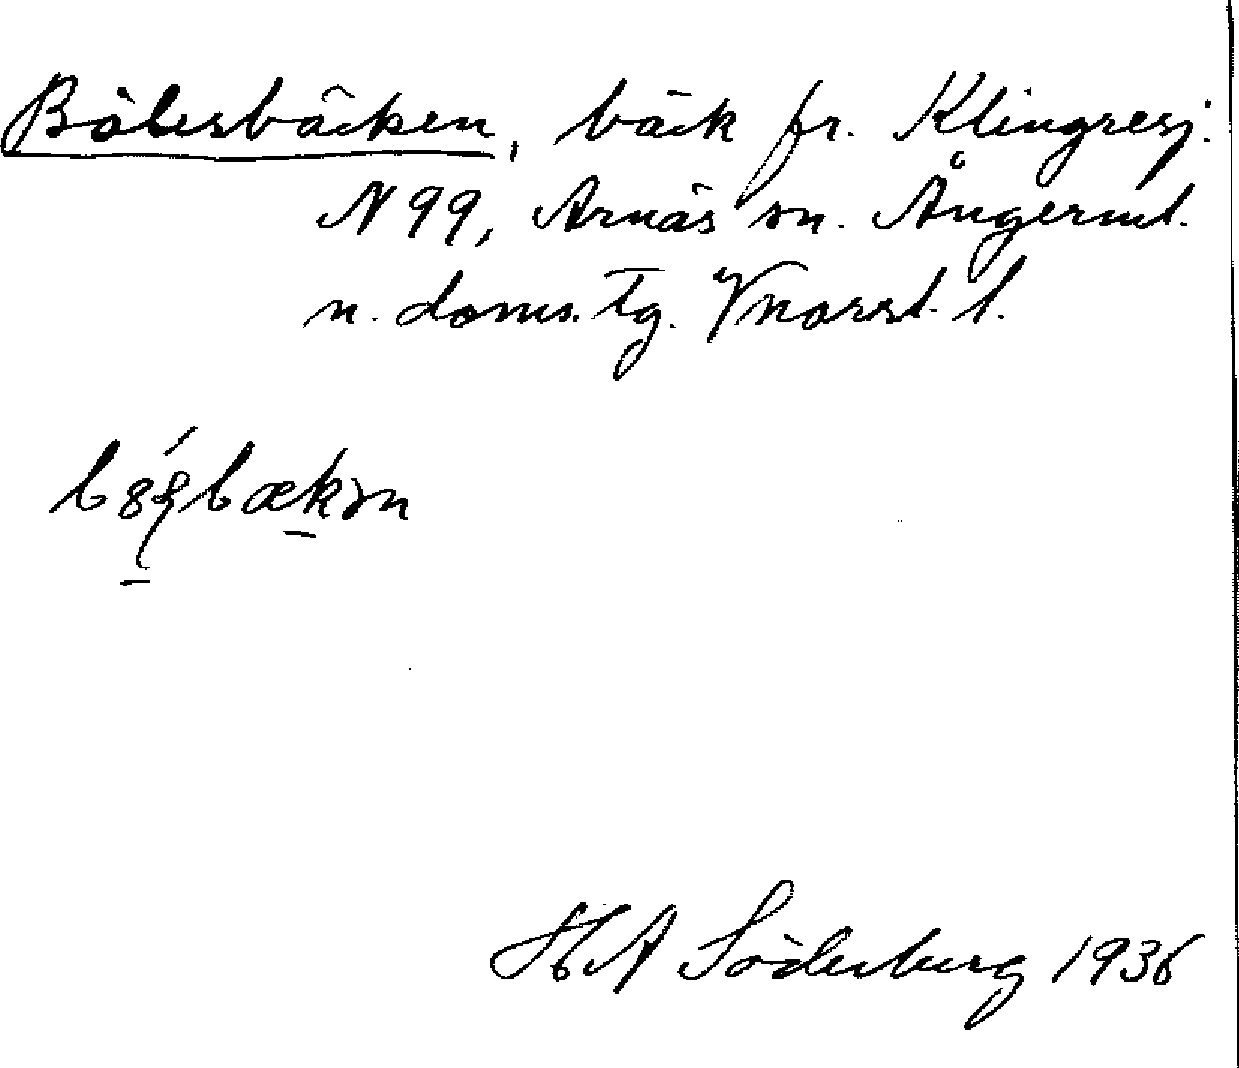 Bölesbäcken, bäck fr. Klingresj.
N 99, Arnäs sn. Ångerml.
n. doms. tg. Vnorrl. l.
bäkən
H A Söderberg 1936